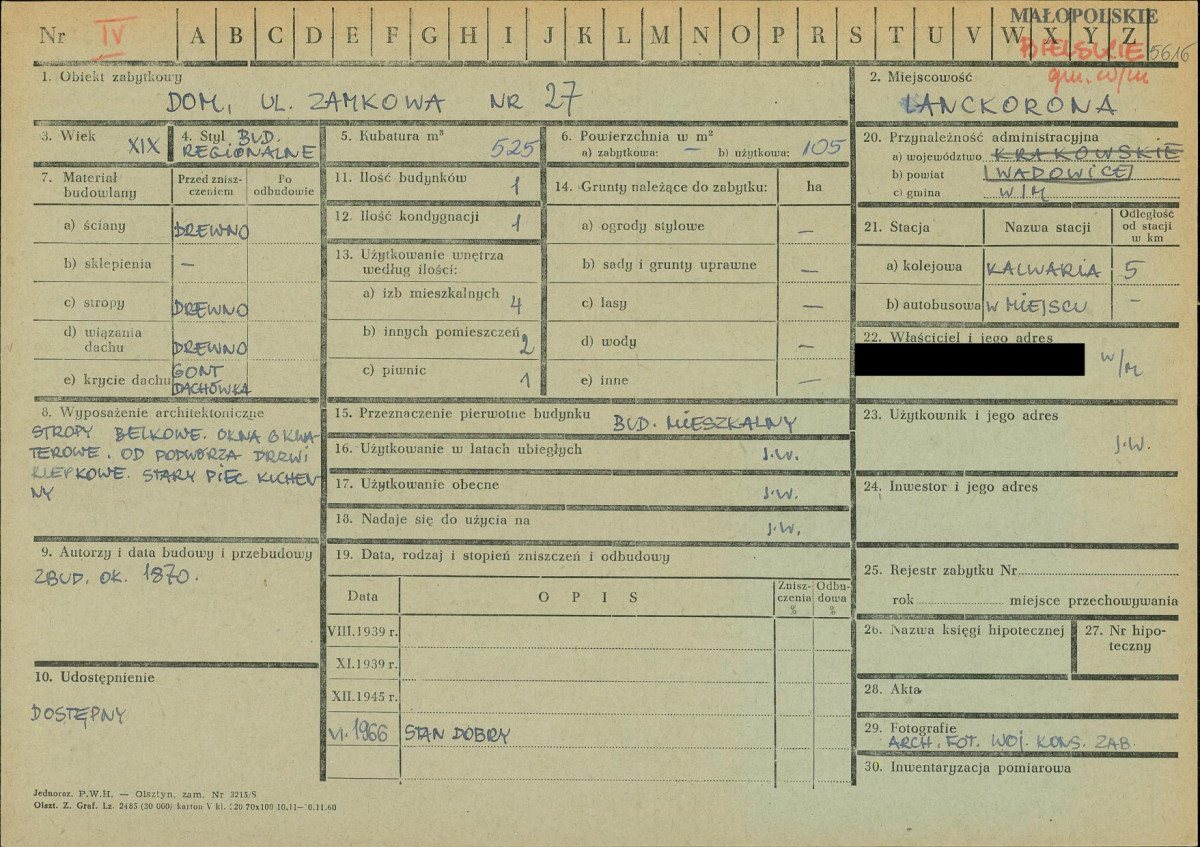 Nr IV A B C D E F G H I J K L M N O P R S T U V W X Y Z
MAŁOPOLSKIE
BIELSKIE 5616
gm. w/m
1. Obiekt zabytkowy
DOM, UL. ZAMKOWA NR 27
2. Miejscowość
LANCKORONA
3. Wiek XIX
4. Styl BUD. REGIONALNE
5. Kubatura m³ 525
6. Powierzchnia w m²
a) zabytkowa: — b) użytkowa: 105
7. Materiał budowlany
Przed zniszczeniem
Po odbudowie
a) ściany DREWNO
b) sklepienia —
c) stropy DREWNO
d) wiązania dachu DREWNO
e) krycie dachu GONT DACHÓWKA
8. Wyposażenie architektoniczne
STROPY BELKOWE. OKNA 6 KWA-
TEROWE. OD PODWÓRZA DRZWI
KLEPKOWE. STARY PIEC KUCHEN-
NY
9. Autorzy i data budowy i przebudowy
ZBUD. OK. 1870.
10. Udostępnienie
DOSTĘPNY
11. Ilość budynków 1
12. Ilość kondygnacji 1
13. Użytkowanie wnętrza
według ilości:
a) izb mieszkalnych 4
b) innych pomieszczeń 2
c) piwnic 1
14. Grunty należące do zabytku: ha
a) ogrody stylowe —
b) sady i grunty uprawne —
c) lasy —
d) wody —
e) inne —
15. Przeznaczenie pierwotne budynku BUD. MIESZKALNY
16. Użytkowanie w latach ubiegłych J.W.
17. Użytkowanie obecne J.W.
18. Nadaje się do użycia na J.W.
19. Data, rodzaj i stopień zniszczeń i odbudowy
Data OPIS Zniszczenia % Odbudowa %
VIII.1939 r.
XI.1939 r.
XII.1945 r.
VI.1966 STAN DOBRY
20. Przynależność administracyjna
a) województwo KRAKOWSKIE
b) powiat WADOWICE
c) gmina W/M
21. Stacja Nazwa stacji Odległość od stacji w km
a) kolejowa KALWARIA 5
b) autobusowa W MIEJSCU —
22. Właściciel i jego adres
W/M
23. Użytkownik i jego adres
J.W.
24. Inwestor i jego adres
25. Rejestr zabytku Nr
rok miejsce przechowywania
26. Nazwa księgi hipotecznej
27. Nr hipoteczny
28. Akta
29. Fotografie
ARCH. FOT. WOJ. KONS. ZAB.
30. Inwentaryzacja pomiarowa
Jednoraz. P.W.H. — Olsztyn, zam. Nr 3215/S
Olszt. Z. Graf. Lz. 2485 (30 000) karton V kl.